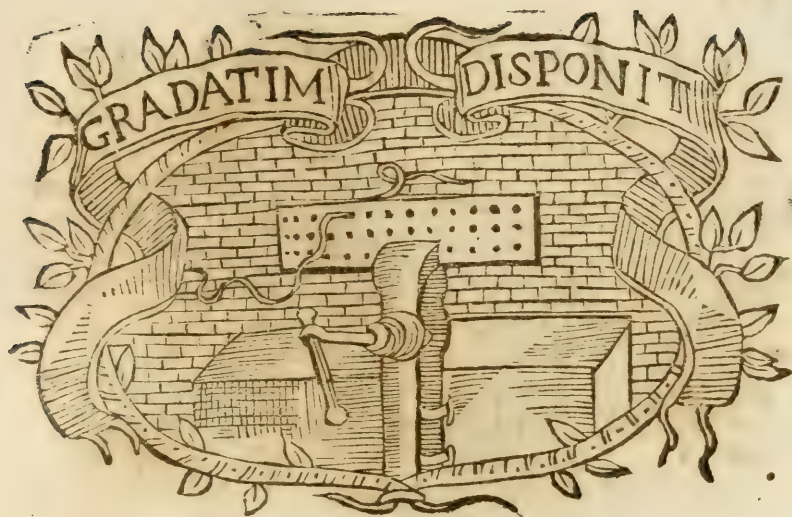 GRADATIM DISPONIT